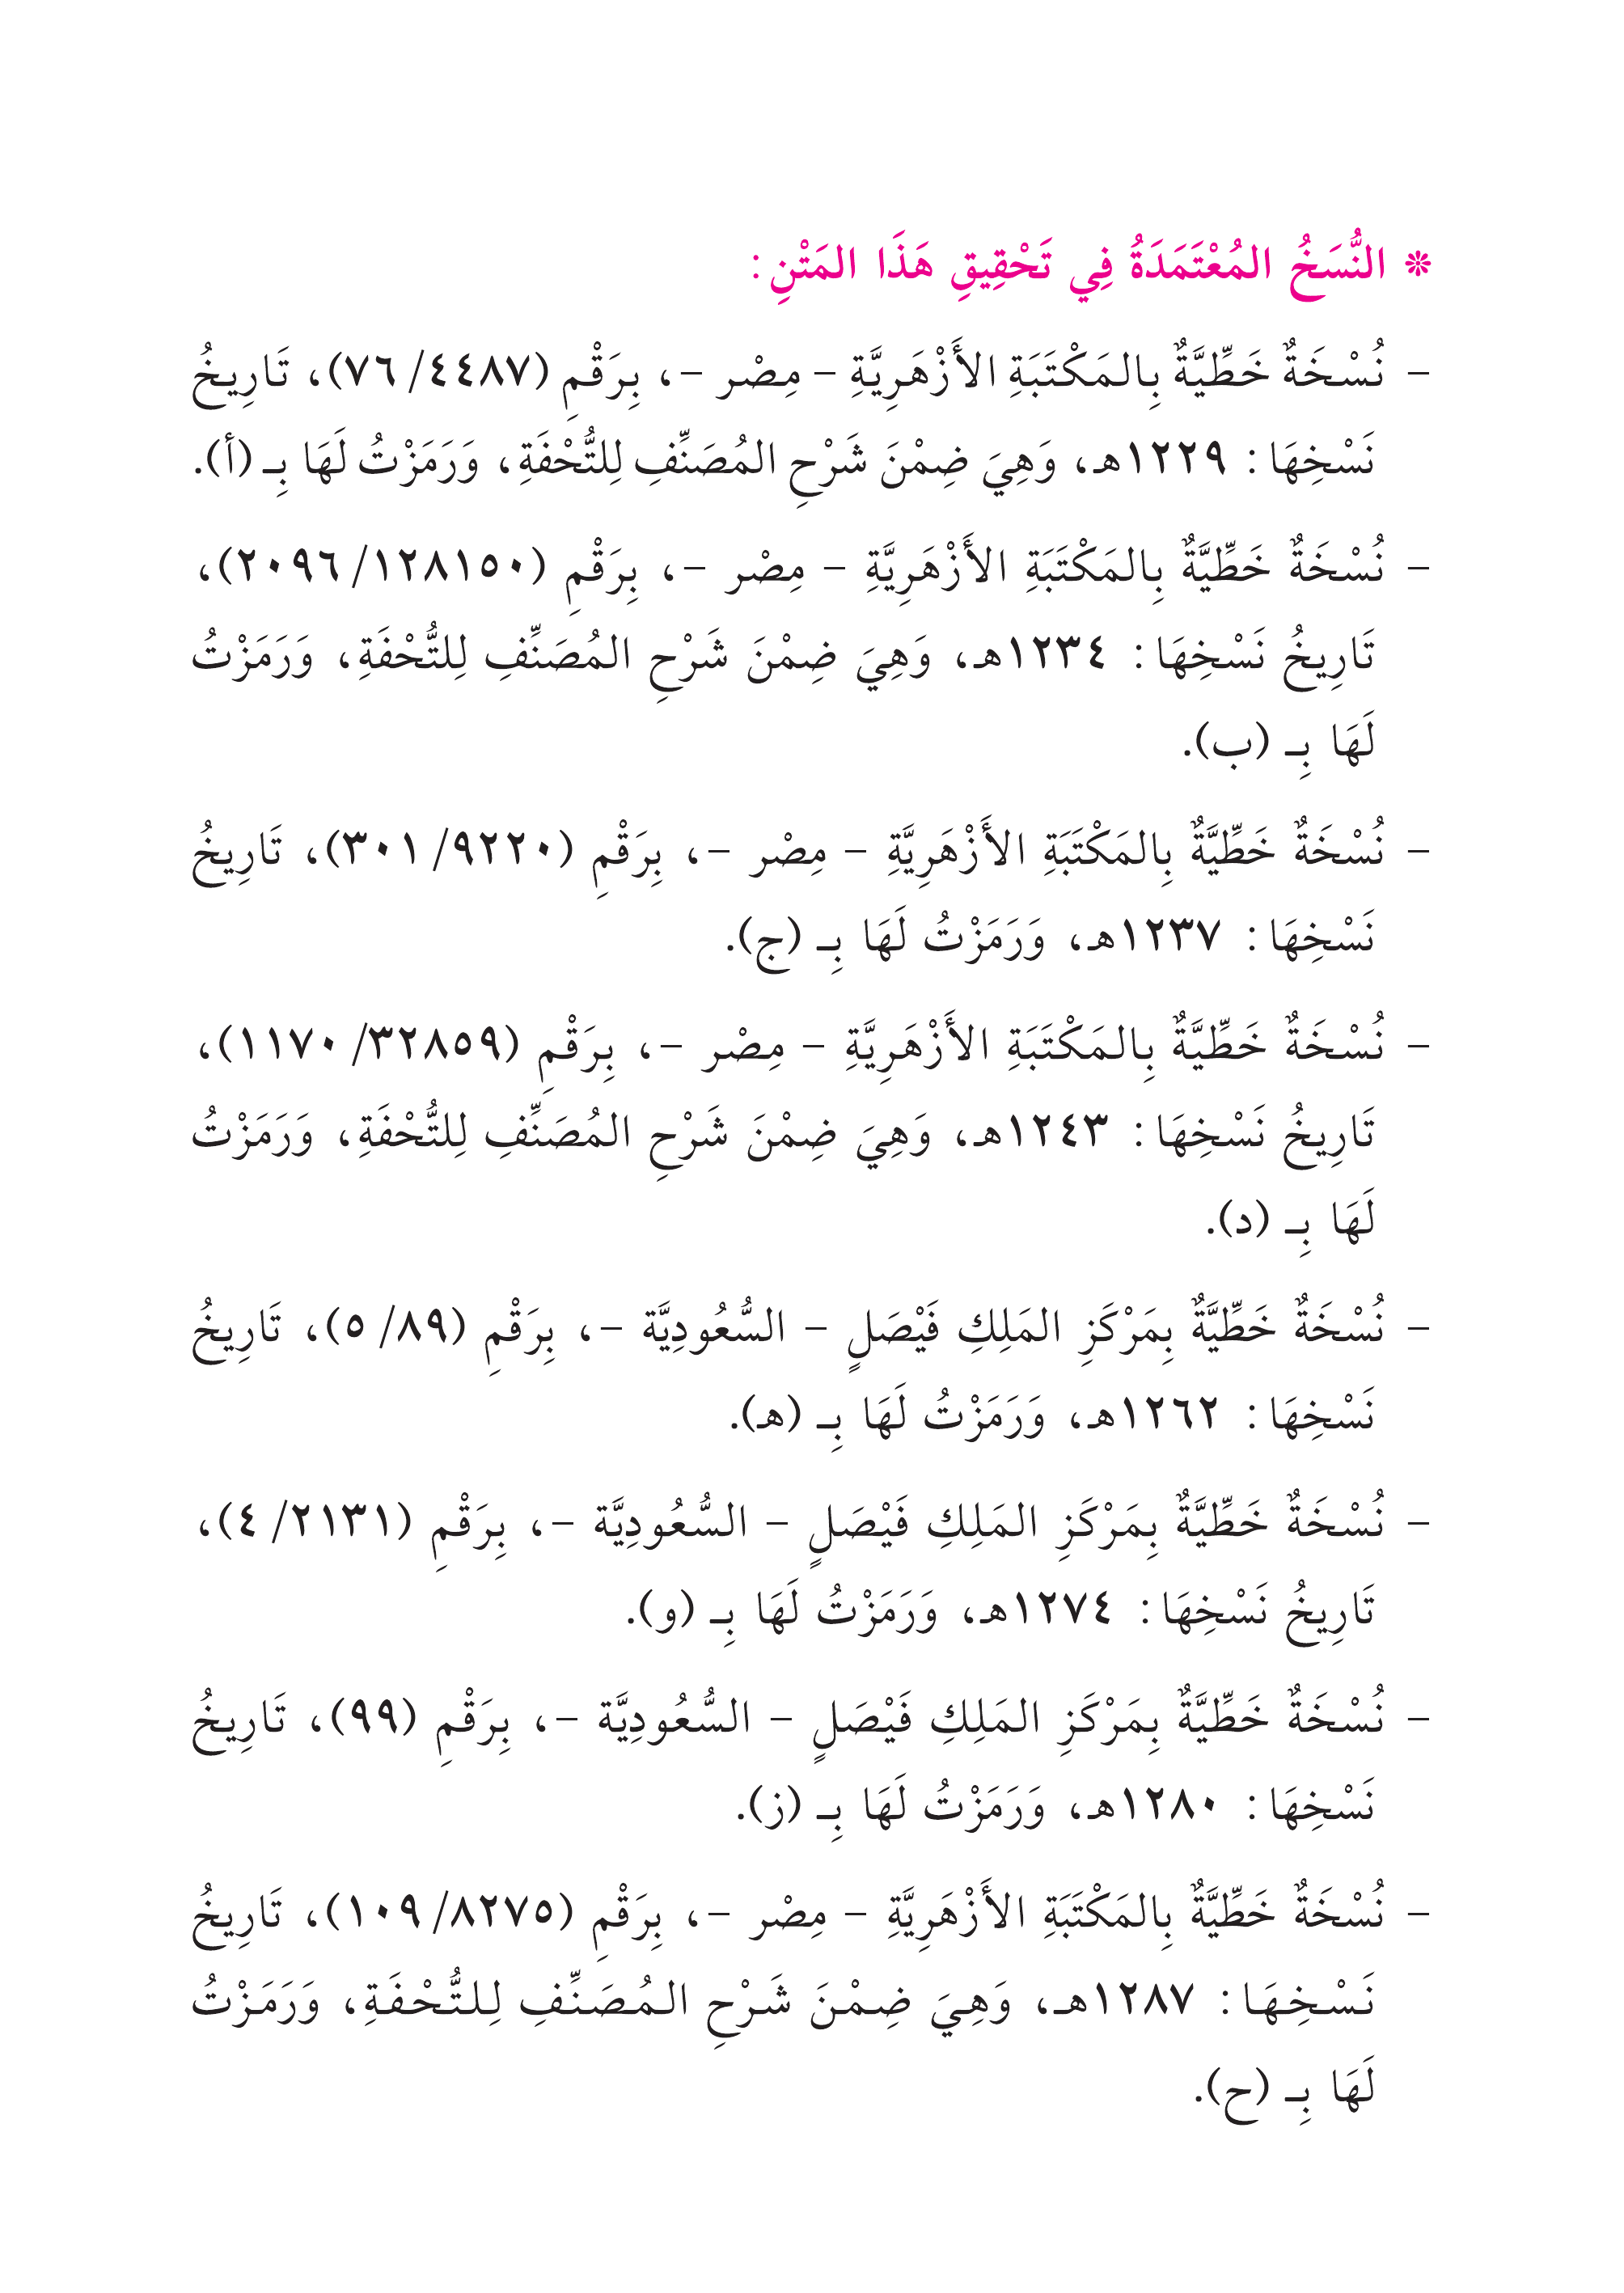 ❊ النُّسَخُ المُعْتَمَدَةُ فِي تَحْقِيقِ هَذَا المَتْنِ:
- نُسْخَةٌ خَطِّيَّةٌ بِالمَكْتَبَةِ الأَزْهَرِيَّةِ - مِصْر -، بِرَقْمِ (٤٤٨٧/ ٧٦)، تَارِيخُ
نَسْخِهَا: ١٢٢٩هـ، وَهِيَ ضِمْنَ شَرْحِ المُصَنِّفِ لِلتُّحْفَةِ، وَرَمَزْتُ لَهَا بِـ (أ).
- نُسْخَةٌ خَطِّيَّةٌ بِالمَكْتَبَةِ الأَزْهَرِيَّةِ - مِصْر -، بِرَقْمِ (١٢٨١٥٠/ ٢٠٩٦)،
تَارِيخُ نَسْخِهَا: ١٢٣٤هـ، وَهِيَ ضِمْنَ شَرْحِ المُصَنِّفِ لِلتُّحْفَةِ، وَرَمَزْتُ
لَهَا بِـ (ب).
- نُسْخَةٌ خَطِّيَّةٌ بِالمَكْتَبَةِ الأَزْهَرِيَّةِ - مِصْر -، بِرَقْمِ (٩٢٢٠/ ٣٠١)، تَارِيخُ
نَسْخِهَا: ١٢٣٧هـ، وَرَمَزْتُ لَهَا بِـ (ج).
- نُسْخَةٌ خَطِّيَّةٌ بِالمَكْتَبَةِ الأَزْهَرِيَّةِ - مِصْر -، بِرَقْمِ (٣٢٨٥٩/ ١١٧٠)،
تَارِيخُ نَسْخِهَا: ١٢٤٣هـ، وَهِيَ ضِمْنَ شَرْحِ المُصَنِّفِ لِلتُّحْفَةِ، وَرَمَزْتُ
لَهَا بِـ (د).
- نُسْخَةٌ خَطِّيَّةٌ بِمَرْكَزِ المَلِكِ فَيْصَلٍ - السُّعُودِيَّة -، بِرَقْمِ (٨٩/ ٥)، تَارِيخُ
نَسْخِهَا: ١٢٦٢هـ، وَرَمَزْتُ لَهَا بِـ (هـ).
- نُسْخَةٌ خَطِّيَّةٌ بِمَرْكَزِ المَلِكِ فَيْصَلٍ - السُّعُودِيَّة -، بِرَقْمِ (٢١٣١/ ٤)،
تَارِيخُ نَسْخِهَا: ١٢٧٤هـ، وَرَمَزْتُ لَهَا بِـ (و).
- نُسْخَةٌ خَطِّيَّةٌ بِمَرْكَزِ المَلِكِ فَيْصَلٍ - السُّعُودِيَّة -، بِرَقْمِ (٩٩)، تَارِيخُ
نَسْخِهَا: ١٢٨٠هـ، وَرَمَزْتُ لَهَا بِـ (ز).
- نُسْخَةٌ خَطِّيَّةٌ بِالمَكْتَبَةِ الأَزْهَرِيَّةِ - مِصْر -، بِرَقْمِ (٨٢٧٥/ ١٠٩)، تَارِيخُ
نَسْخِهَا: ١٢٨٧هـ، وَهِيَ ضِمْنَ شَرْحِ المُصَنِّفِ لِلتُّحْفَةِ، وَرَمَزْتُ
لَهَا بِـ (ح).